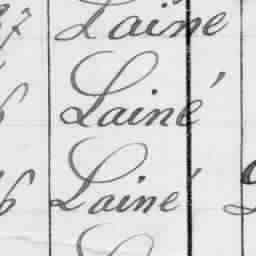 27 Lainé
6 Lainé
6 Lainé